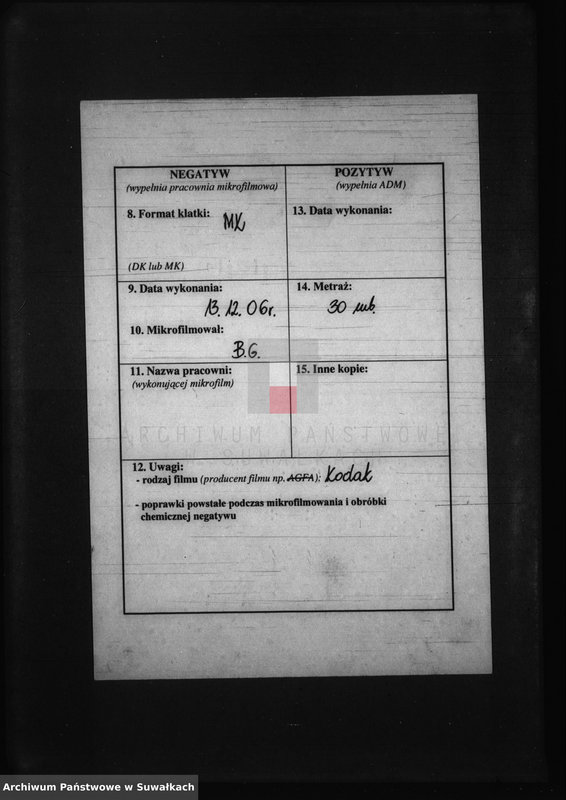 NEGATYW
(wypełnia pracownia mikrofilmowa)
8. Format klatki: MK
(DK lub MK)
9. Data wykonania:
13.12.06r.
10. Mikrofilmował:
B.G.
11. Nazwa pracowni:
(wykonującej mikrofilm)
POZYTYW
(wypełnia ADM)
13. Data wykonania:
14. Metraż:
30 mb.
15. Inne kopie:
12. Uwagi:
- rodzaj filmu (producent filmu np. AGFA): Kodak
- poprawki powstałe podczas mikrofilmowania i obróbki
chemicznej negatywu
ARCHIWUM PAŃSTWOWE
W SUWAŁKACH
Archiwum Państwowe w Suwałkach